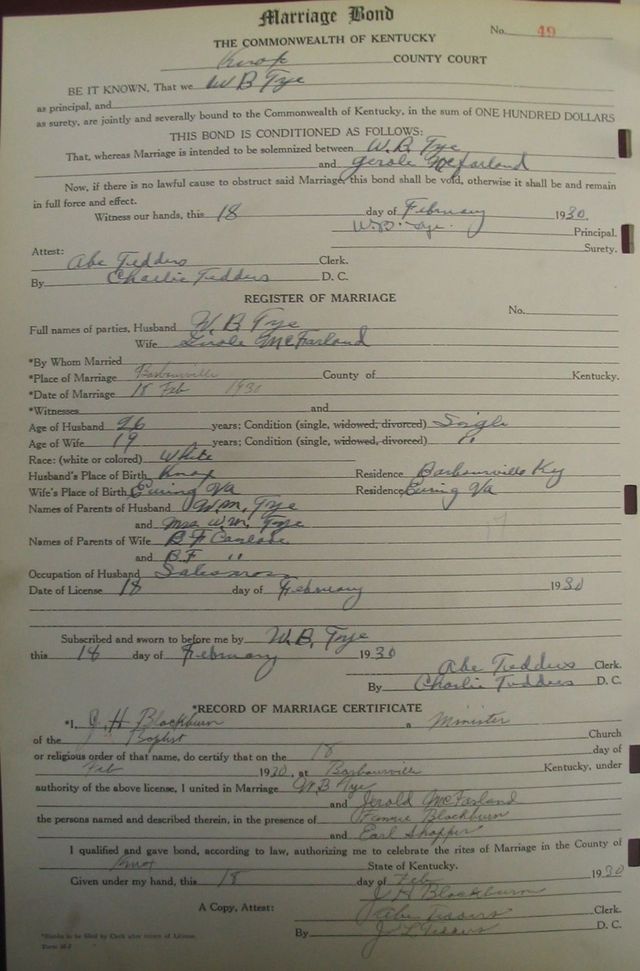 Marriage Bond
No. 49
THE COMMONWEALTH OF KENTUCKY
Knox COUNTY COURT
BE IT KNOWN, That we W B Tye
as principal, and
as surety, are jointly and severally bound to the Commonwealth of Kentucky, in the sum of ONE HUNDRED DOLLARS
THIS BOND IS CONDITIONED AS FOLLOWS:
That, whereas Marriage is intended to be solemnized between W. B. Tye
and Gerole McFarland
Now, if there is no lawful cause to obstruct said Marriage, this bond shall be void, otherwise it shall be and remain
in full force and effect.
Witness our hands, this 18 day of February 1930.
W. B. Tye. Principal.
Surety.
Attest:
Abe Tedders Clerk.
By Charlie Tedders D. C.
REGISTER OF MARRIAGE
No.
Full names of parties, Husband W. B Tye
Wife McFarland
*By Whom Married
*Place of Marriage Barbourville County of Kentucky.
*Date of Marriage 18 Feb 1930
*Witnesses and
Age of Husband 26 years; Condition (single, widowed, divorced) Single
Age of Wife 19 years; Condition (single, widowed, divorced) "
Race: (white or colored) White
Husband's Place of Birth Knox Residence Barbourville Ky
Wife's Place of Birth Ewing Va Residence Ewing Va
Names of Parents of Husband W.M. Tye
and Mrs W.M. Tye
Names of Parents of Wife B F
and B.F "
Occupation of Husband Salesman
Date of License 18 day of February 1930
Subscribed and sworn to before me by W. B. Tye
this 18 day of February 1930
Abe Tedders Clerk.
By Charlie Tedders D. C.
*RECORD OF MARRIAGE CERTIFICATE
*I, J. H Blackburn a Minister
of the Baptist Church
or religious order of that name, do certify that on the 18 day of
Feb 1930, at Barbourville Kentucky, under
authority of the above license, I united in Marriage W B Tye
and Jerold McFarland
the persons named and described therein, in the presence of Fannie Blackburn
and Earl
I qualified and gave bond, according to law, authorizing me to celebrate the rites of Marriage in the County of
Knox State of Kentucky.
Given under my hand, this 18 day of Feb 1930
J H Blackburn
A Copy, Attest: Abe Tedders Clerk.
By J L Tedders D. C.
*Blanks to be filed by Clerk after return of License.